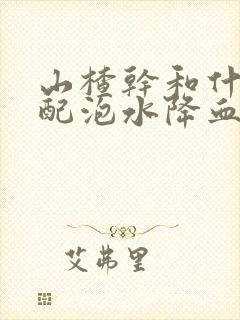 山楂幹和什
配泡水降血
艾弗里